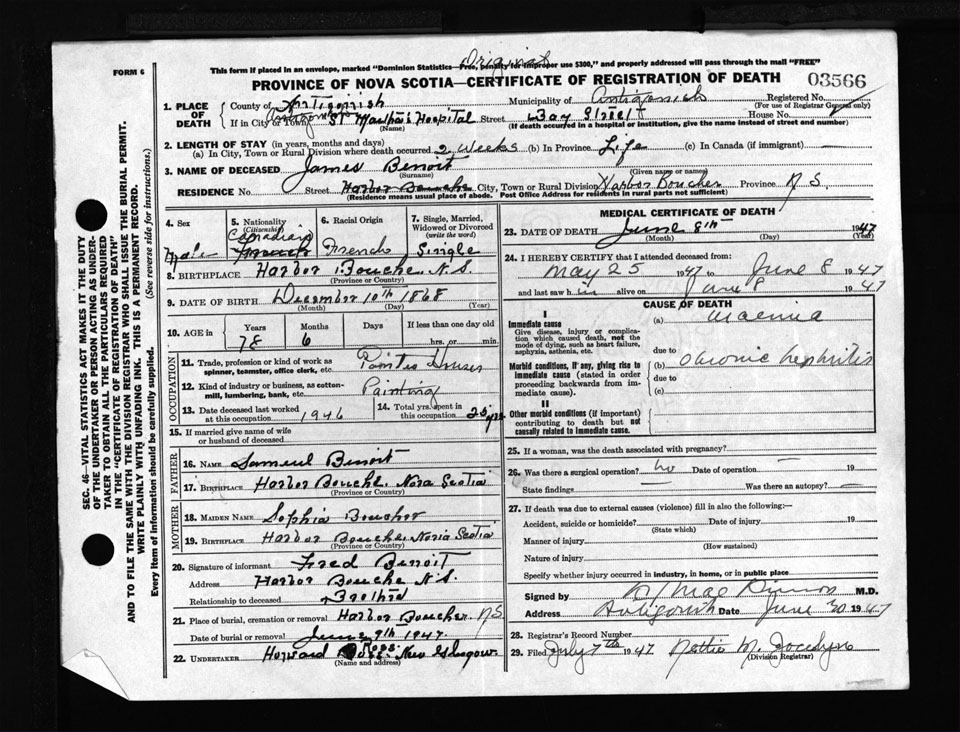 Original
FORM 6
This form if placed in an envelope, marked "Dominion Statistics—Free, penalty for improper use $300," and properly addressed will pass through the mail "FREE"
PROVINCE OF NOVA SCOTIA—CERTIFICATE OF REGISTRATION OF DEATH
03566
1. PLACE OF DEATH County of Antigonish Municipality of Antigonish Registered No.
(For use of Registrar General only)
If in City or Town Antigonish St Martha's Hospital Street Bay Street House No.
(Name) (If death occurred in a hospital or institution, give the name instead of street and number)
2. LENGTH OF STAY (in years, months and days)
(a) In City, Town or Rural Division where death occurred 2 weeks (b) In Province Life (c) In Canada (if immigrant) —
3. NAME OF DECEASED James Benoit
(Surname) (Given name or names)
RESIDENCE No. Street Harbor Bouche City, Town or Rural Division Harbor Boucher Province N S.
(Residence means usual place of abode. Post Office Address for residents in rural parts not sufficient)
4. Sex Male
5. Nationality (Citizenship) Canadian French
6. Racial Origin French
7. Single, Married, Widowed or Divorced (write the word) Single
8. BIRTHPLACE Harbor Bouche N.S.
(Province or Country)
9. DATE OF BIRTH December 10th 1868
(Month) (Day) (Year)
10. AGE in Years Months Days If less than one day old
78 6 hrs. or min.
OCCUPATION
11. Trade, profession or kind of work as spinner, teamster, office clerk, etc. Paintes Houses
12. Kind of industry or business, as cotton-mill, lumbering, bank, etc. Painting
13. Date deceased last worked at this occupation 1946
14. Total yrs. spent in this occupation 25 yrs
15. If married give name of wife or husband of deceased
FATHER
16. NAME Samuel Benoit
17. BIRTHPLACE Harbor Bouche. Nova Scotia
(Province or Country)
MOTHER
18. MAIDEN NAME Sophia Boucher
19. BIRTHPLACE Harbor Bouche. Nova Scotia
(Province or Country)
20. Signature of informant Fred Benoit
Address Harbor Bouche N.S.
Relationship to deceased Brother
21. Place of burial, cremation or removal Harbor Boucher. N S
Date of burial or removal June 9th 1947.
22. UNDERTAKER Howard Ross New Glasgow
(Name and address)
MEDICAL CERTIFICATE OF DEATH
23. DATE OF DEATH June 8th 1947
(Month) (Day) (Year)
24. I HEREBY CERTIFY that I attended deceased from:
May 25 1947 to June 8 1947
and last saw him alive on June 8 1947
CAUSE OF DEATH
I
Immediate cause (a) Uraemia
Give disease, injury or complication which caused death, not the mode of dying, such as heart failure, asphyxia, asthenia, etc.
due to
Morbid conditions, if any, giving rise to immediate cause (stated in order proceeding backwards from immediate cause).
(b) chronic nephritis
due to
(c)
II
Other morbid conditions (if important) contributing to death but not causally related to immediate cause.
25. If a woman, was the death associated with pregnancy? —
26. Was there a surgical operation? no Date of operation — 19
State findings — Was there an autopsy? —
27. If death was due to external causes (violence) fill in also the following:—
Accident, suicide or homicide? Date of injury 19
(State which)
Manner of injury
(How sustained)
Nature of injury
Specify whether injury occurred in industry, in home, or in public place
Signed by M.D.
Address Antigonish Date June 30 1947
28. Registrar's Record Number
29. Filed July 7th 1947 Nettie M. Jocelyn
(Division Registrar)
SEC. 46—VITAL STATISTICS ACT MAKES IT THE DUTY
OF THE UNDERTAKER OR PERSON ACTING AS UNDER-
TAKER TO OBTAIN ALL THE PARTICULARS REQUIRED
IN THE "CERTIFICATE OF REGISTRATION OF DEATH"
AND TO FILE THE SAME WITH THE DIVISION REGISTRAR WHO SHALL ISSUE THE BURIAL PERMIT.
WRITE PLAINLY WITH UNFADING INK. THIS IS A PERMANENT RECORD.
Every item of information should be carefully supplied. (See reverse side for instructions.)